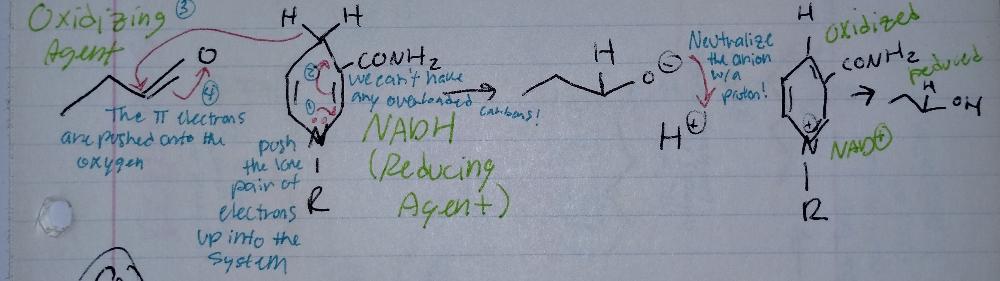 Oxidizing
Agent
③
O
The π electrons
are pushed onto the
oxygen
④
H H
CONH₂
②
①
we can't have
any overloaded
carbons!
N
R
push
the lone
pair of
electrons
up into the
system
NADH
(Reducing
Agent)
H
O ⊖
Neutralize
the anion
w/a
proton!
H ⊕
H
oxidized
CONH₂
⊕
N
R
NAD⊕
reduced
H
OH